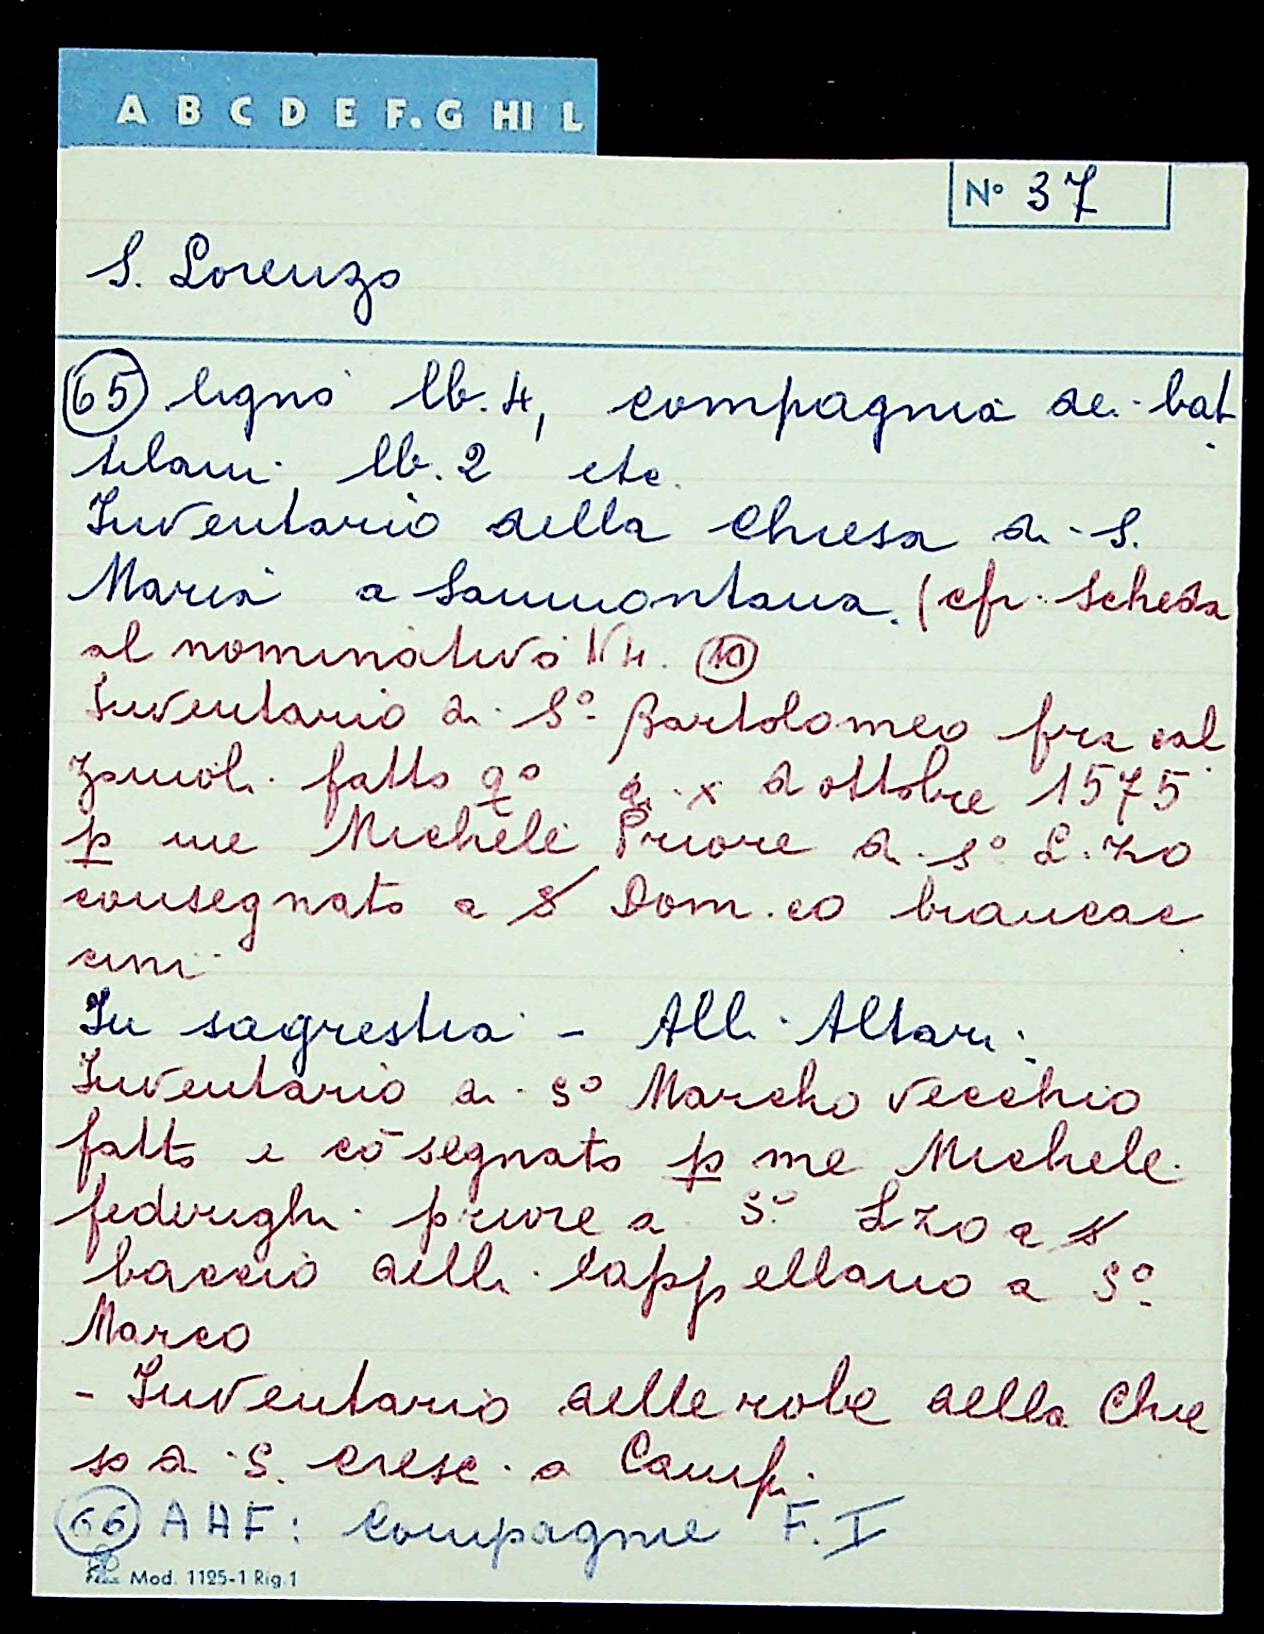 A B C D E F. G HI L
N° 37
S. Lorenzo
65 legno lb. 4, compagnia dei bat
tilani lb. 2 etc.
Inventario della Chiesa di S.
Maria a Sammontana. (cfr. Scheda
al nominativo N 4. 10
Inventario di S° Bartolomeo fra cal
zaioli fatto q° di x d ottobre 1575
p me Michele Priore di s° L.zo
consegnato a S Dom.co brancac
cini
In sagrestia - Alli Altari:
Inventario di S° Marcho vecchio
fatto e cō segnato p me Michele
federighi priore a S° Lzo a s
baccio delli Cappellano a S°
Marco
- Inventario delle robe della Chie
sa di S. Cresci a Campi
66 AAF: Compagnie F. I
Mod. 1125-1 Rig. 1